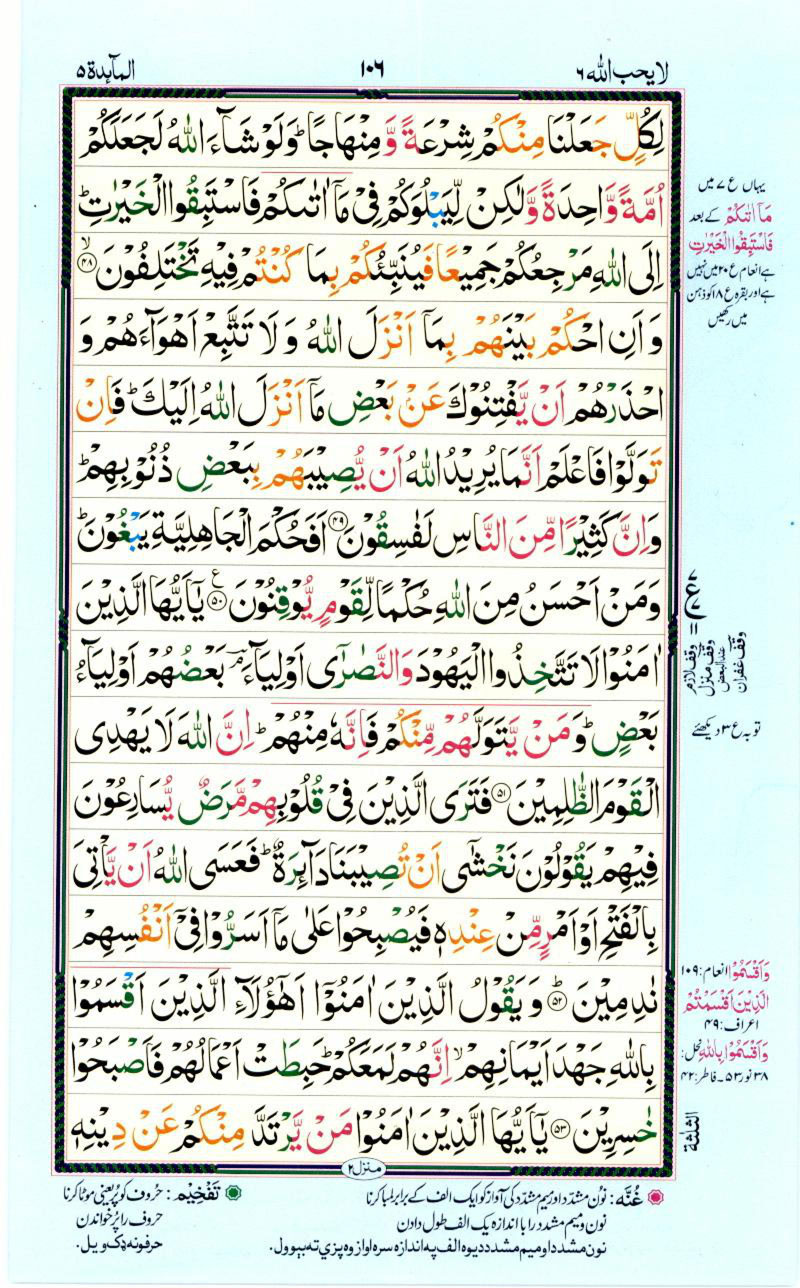 لا يحب الله ٦
١٠٦
المآئدة ٥
لِكُلٍّ جَعَلْنَا مِنْكُمْ شِرْعَةً وَّ مِنْهَاجًا ؕ وَلَوْ شَآءَ اللّٰهُ لَجَعَلَكُمْ
اُمَّةً وَّاحِدَةً وَّلٰكِنْ لِّيَبْلُوَكُمْ فِىْ مَاۤ اٰتٰىكُمْ فَاسْتَبِقُوا الْخَيْرٰتِ ؕ
اِلَى اللّٰهِ مَرْجِعُكُمْ جَمِيْعًا فَيُنَبِّئُكُمْ بِمَا كُنْتُمْ فِيْهِ تَخْتَلِفُوْنَ ۙ﴿۴۸﴾
وَ اَنِ احْكُمْ بَيْنَهُمْ بِمَاۤ اَنْزَلَ اللّٰهُ وَ لَا تَتَّبِعْ اَهْوَآءَهُمْ وَ
احْذَرْهُمْ اَنْ يَّفْتِنُوْكَ عَنْۢ بَعْضِ مَاۤ اَنْزَلَ اللّٰهُ اِلَيْكَ ؕ فَاِنْ
تَوَلَّوْا فَاعْلَمْ اَنَّمَا يُرِيْدُ اللّٰهُ اَنْ يُّصِيْبَهُمْ بِبَعْضِ ذُنُوْبِهِمْ ؕ
وَاِنَّ كَثِيْرًا مِّنَ النَّاسِ لَفٰسِقُوْنَ ﴿۴۹﴾ اَفَحُكْمَ الْجَاهِلِيَّةِ يَبْغُوْنَ ؕ
وَمَنْ اَحْسَنُ مِنَ اللّٰهِ حُكْمًا لِّقَوْمٍ يُّوْقِنُوْنَ ﴿۵۰﴾ۧ يٰۤاَيُّهَا الَّذِيْنَ
اٰمَنُوْا لَا تَتَّخِذُوا الْيَهُوْدَ وَالنَّصٰرٰۤى اَوْلِيَآءَ ۘؔ بَعْضُهُمْ اَوْلِيَآءُ
بَعْضٍ ؕ وَ مَنْ يَّتَوَلَّهُمْ مِّنْكُمْ فَاِنَّهٗ مِنْهُمْ ؕ اِنَّ اللّٰهَ لَا يَهْدِى
الْقَوْمَ الظّٰلِمِيْنَ ﴿۵۱﴾ فَتَرَى الَّذِيْنَ فِىْ قُلُوْبِهِمْ مَّرَضٌ يُّسَارِعُوْنَ
فِيْهِمْ يَقُوْلُوْنَ نَخْشٰۤى اَنْ تُصِيْبَنَا دَآئِرَةٌ ؕ فَعَسَى اللّٰهُ اَنْ يَّاْتِىَ
بِالْفَتْحِ اَوْ اَمْرٍ مِّنْ عِنْدِهٖ فَيُصْبِحُوْا عَلٰى مَاۤ اَسَرُّوْا فِىْۤ اَنْفُسِهِمْ
نٰدِمِيْنَ ؕ﴿۵۲﴾ وَ يَقُوْلُ الَّذِيْنَ اٰمَنُوْۤا اَهٰۤؤُلَآءِ الَّذِيْنَ اَقْسَمُوْا
بِاللّٰهِ جَهْدَ اَيْمَانِهِمْ ۙ اِنَّهُمْ لَمَعَكُمْ ؕ حَبِطَتْ اَعْمَالُهُمْ فَاَصْبَحُوْا
خٰسِرِيْنَ ﴿۵۳﴾ يٰۤاَيُّهَا الَّذِيْنَ اٰمَنُوْا مَنْ يَّرْتَدَّ مِنْكُمْ عَنْ دِيْنِهٖ
منزل ٢
یہاں ع ۷ میں
مَاۤ اٰتٰىكُمْ کے بعد
فَاسْتَبِقُوا الْخَيْرٰتِ
ہے انعام ع ۲۰ میں نہیں
ہے اور بقرہ ع ۱۸ کو ذہن
میں رکھیں
ع
۷
۱۱
وقف لازم
وقف منزل
عند البعض
وقف غفران
توبہ ع ۳ دیکھئے
وَاَقْسَمُوْا انعام: ۱۰۹
الَّذِيْنَ اَقْسَمْتُمْ
اعراف: ۴۹
وَاَقْسَمُوْا بِاللّٰهِ نحل:
۳۸ نور ۵۳ ۔ فاطر: ۴۲
الثلثة
غُنَّه: نون مشدد اور میم مشدد کی آواز کو ایک الف کے برابر لمبا کرنا
نون و میم مشدد را با اندازه یک الف طول دادن
نون مشدد او میم مشدد دیوه الف په اندازه سره اواز وه پزي ته بیوول.
تَفْخِيْم: حروف کو پُر یعنی موٹا کرنا
حروف را پُر خواندن
حرفونه ډک ویل.